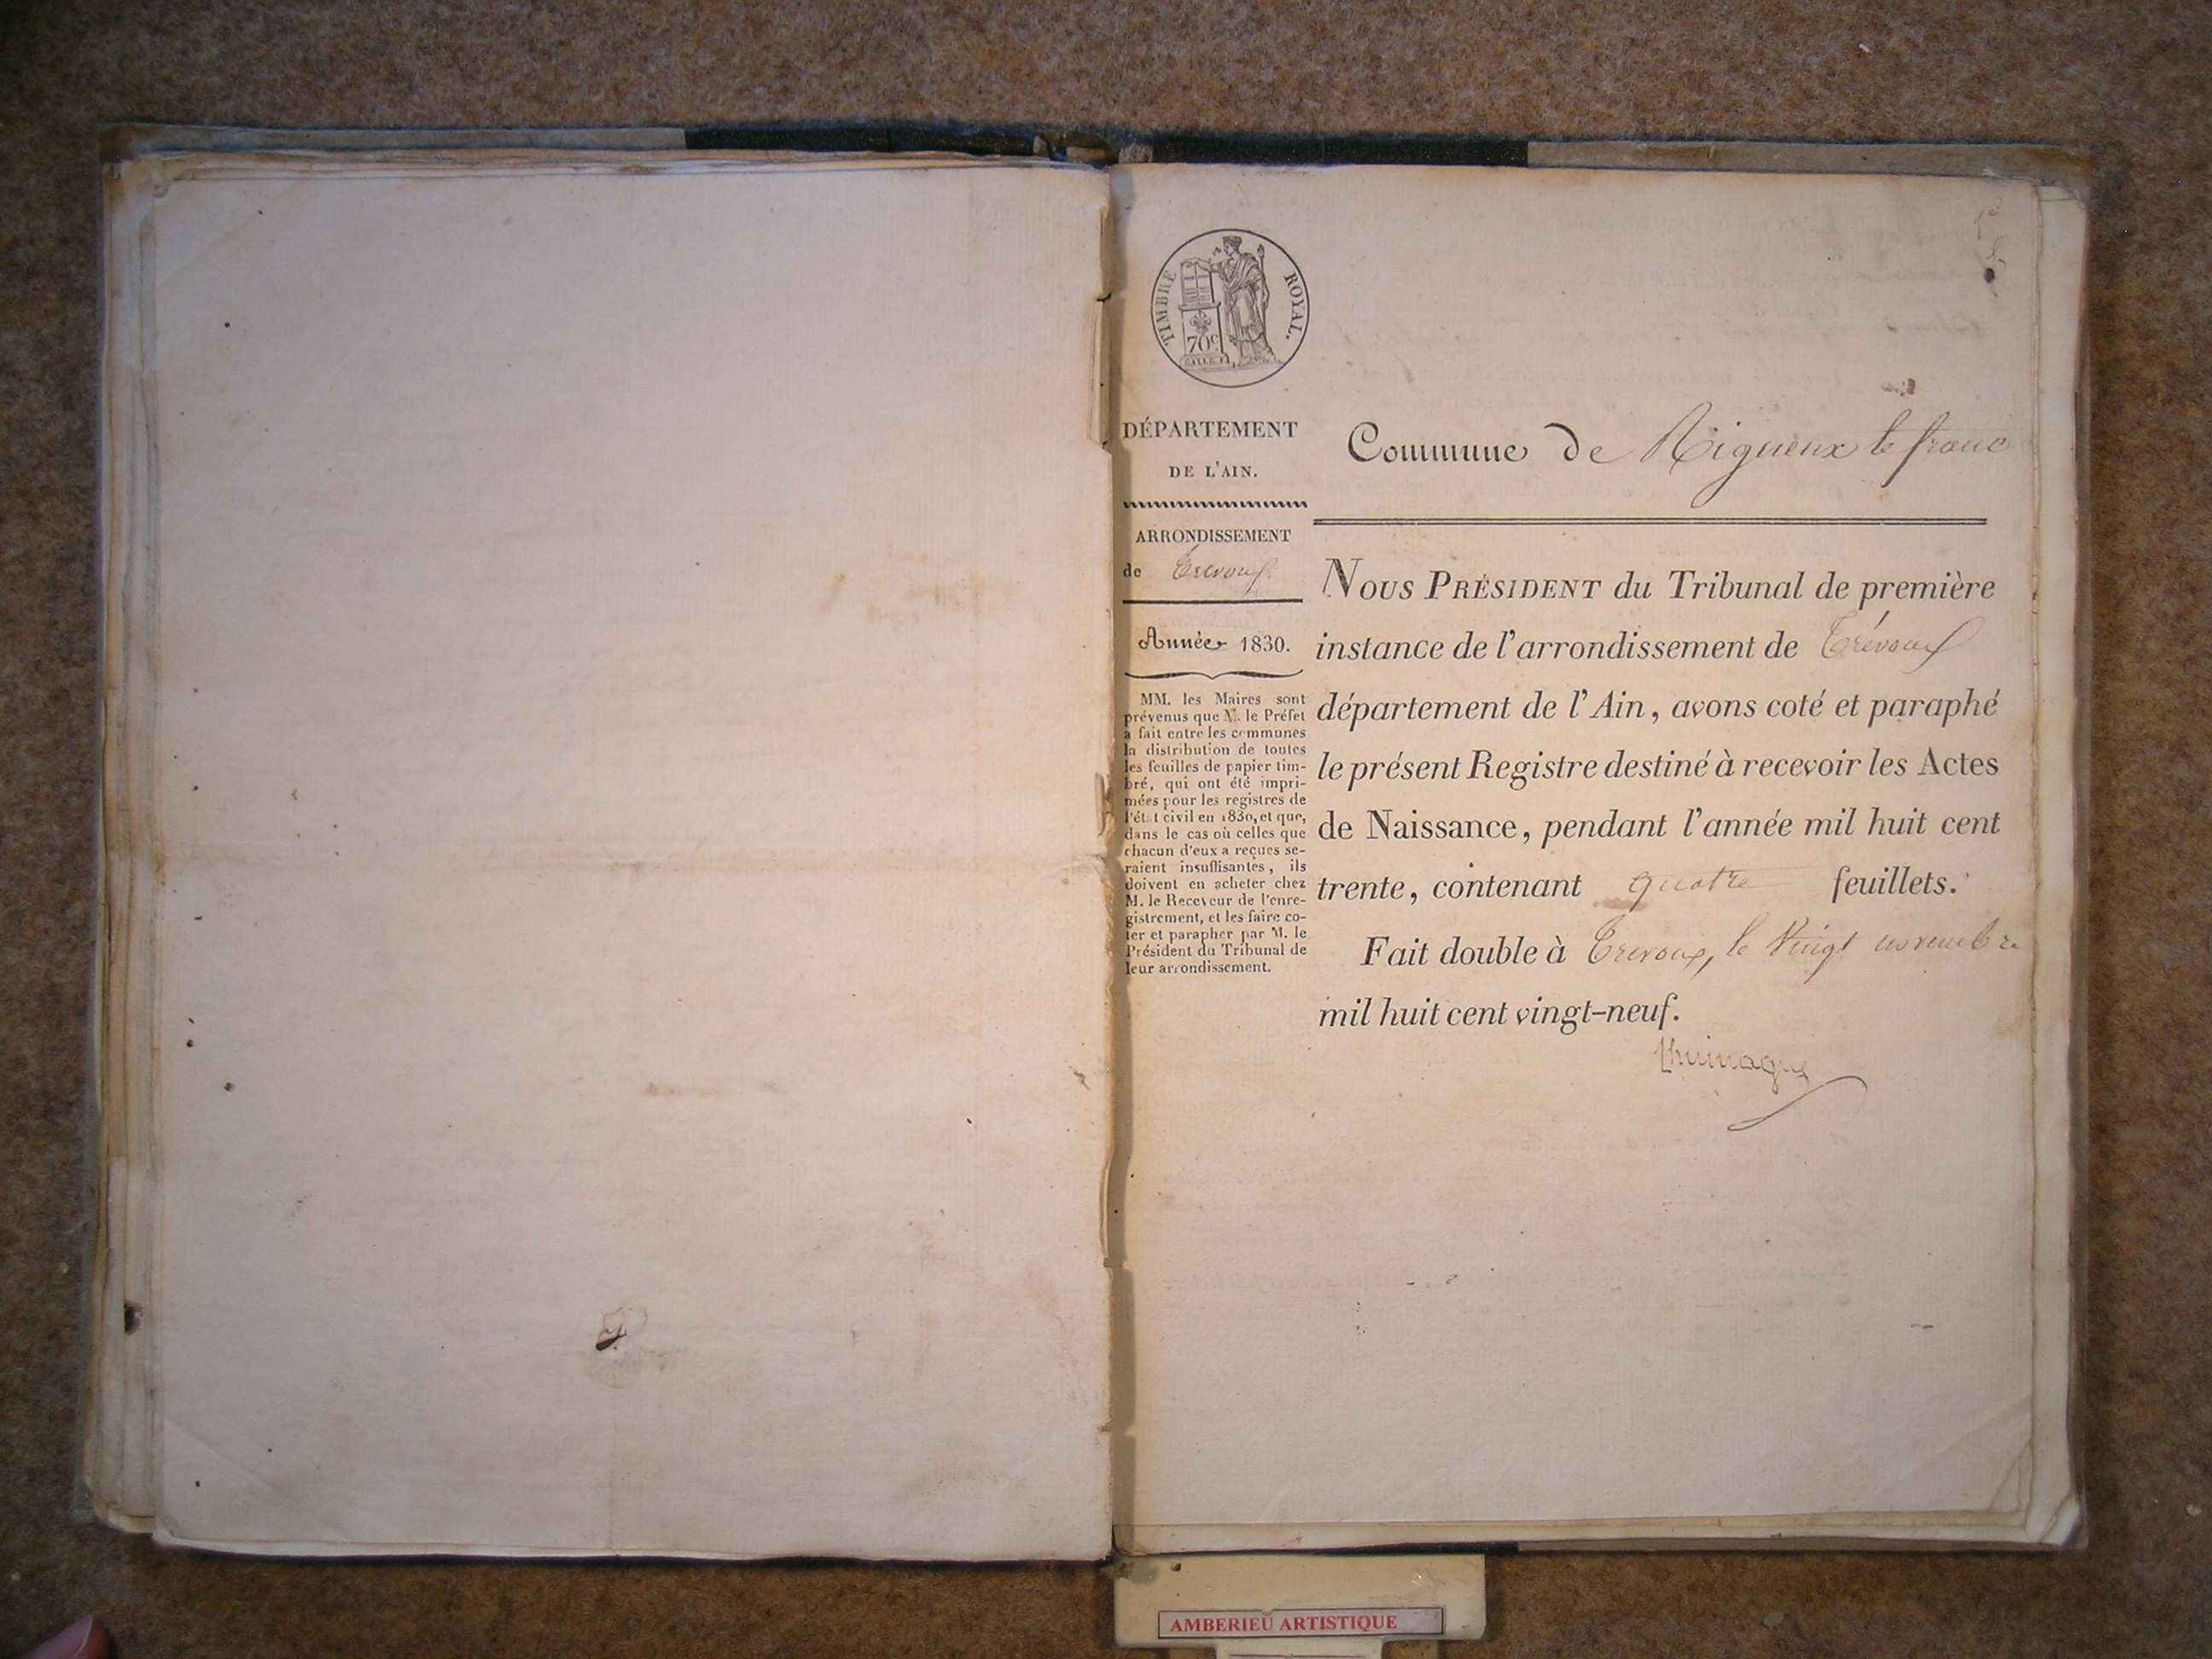 TIMBRE ROYAL.
70c
DÉPARTEMENT
DE L'AIN.
ARRONDISSEMENT
de Trevoux
Année 1830.
MM. les Maires sont
prévenus que M. le Préfet
a fait entre les communes
la distribution de toutes
les feuilles de papier tim-
bré, qui ont été impri-
mées pour les registres de
l'état civil en 1830, et que,
dans le cas où celles que
chacun d'eux a reçues se-
raient insuffisantes, ils
doivent en acheter chez
M. le Receveur de l'enre-
gistrement, et les faire co-
ter et parapher par M. le
Président du Tribunal de
leur arrondissement.
Commune de Rigneux le franc
NOUS PRÉSIDENT du Tribunal de première
instance de l'arrondissement de Trévoux
département de l'Ain, avons coté et paraphé
le présent Registre destiné à recevoir les Actes
de Naissance, pendant l'année mil huit cent
trente, contenant quatre feuillets.
Fait double à Trevoux, le Vingt novembre
mil huit cent vingt-neuf.
AMBERIEU ARTISTIQUE